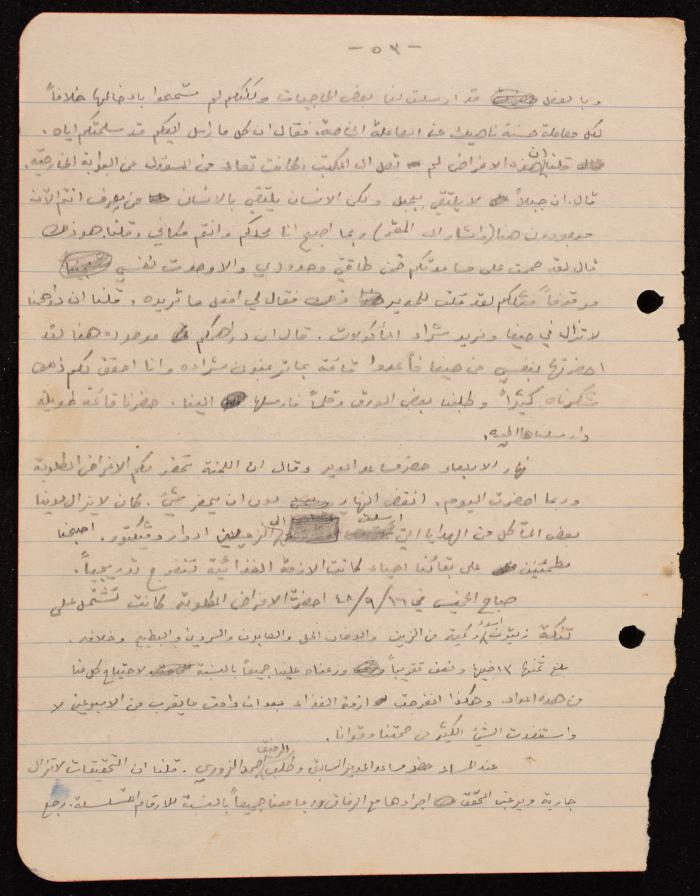 - ٥٣ -
وبالفعل قد ارسلت لنا بعض الحاجيات ولكنكم لم تسمحوا بادخالها خلافاً
لكل معاملة حسنة ناهيك عن المعاملة الخاصة. فقال ان كل ما ارسل اليكم قد سلمتكم اياه.
قلنا ان هذه الاغراض لم تصل الى المكتب وكانت تعاد من المسؤول عن البوابة الخارجية.
قال. ان جبلاً لا يلتقي بجبل ولكن الانسان يلتقي بالانسان من يعرف انتم الآن
موجودون هنا (واشار الى المقر) ربما اصبح انا محلكم وانتم مكاني وقلنا هو ذلك
قال لقد صممت على مساعدتكم ضمن طاقتي وحدودي والا وجدت نفسي
موقوفاً مثلكم لقد قلت للمدير ذلك فقال لي افعل ما تريده. وقلنا ان دراهمنا
لا تزال في حيفا ونريد شراء المأكولات. قال ان دراهمكم موجوده هنا لقد
احضرتها بنفسي من حيفا فأعدوا قائمة بما ترغبون بشراءه وانا احقق لكم ذلك
شكرناه كثيراً وطلبنا بعض الورق وقلماً فارسلها الينا. حضرنا قائمة طويلة
وارسلناها اليه.
نهار الاربعاء حضر مساعد المدير وقال ان اللجنة تحضر لكم الاغراض المطلوبة
وربما احضرت اليوم. انقضى النهار بدون ان يحضر شيئ. كان لا يزال لدينا
بعض المآكل من الهدايا التي ارسلت الى الزميلين ادوار وفيكتور. اصبحنا
مطمئنين على بقائنا احياء كانت الازمة الغذائية تنفرج تدريجياً.
صباح الخميس في ١٦/٩/٤٨ احضرت الاغراض المطلوبة كانت تشتمل على
تنكة زيتون اسود وكمية من الزيت والدخان الخل والصابون والسردين والبطيخ وخلافه.
بلغ ثمنها ١٣ جنيها ونصف تقريباً وزعناه علينا جميعاً بالنسبة لاحتياج كل منا
من هذه المواد. وهكذا انفرجت ازمة الغذاء بعد ان دامت ما يقرب من الاسبوعين
واستنفدت الشيئ الكثير من صحتنا وقوانا.
عند المساء حضر مساعد المدير السابق وطلب الرفيق احمد الزوري. قلنا ان التحقيقات لا تزال
جارية ويرغب المحقق اجراءها مع الرفاق وربما معنا جميعاً بالنسبة للارقام المتسلسلة. رجع